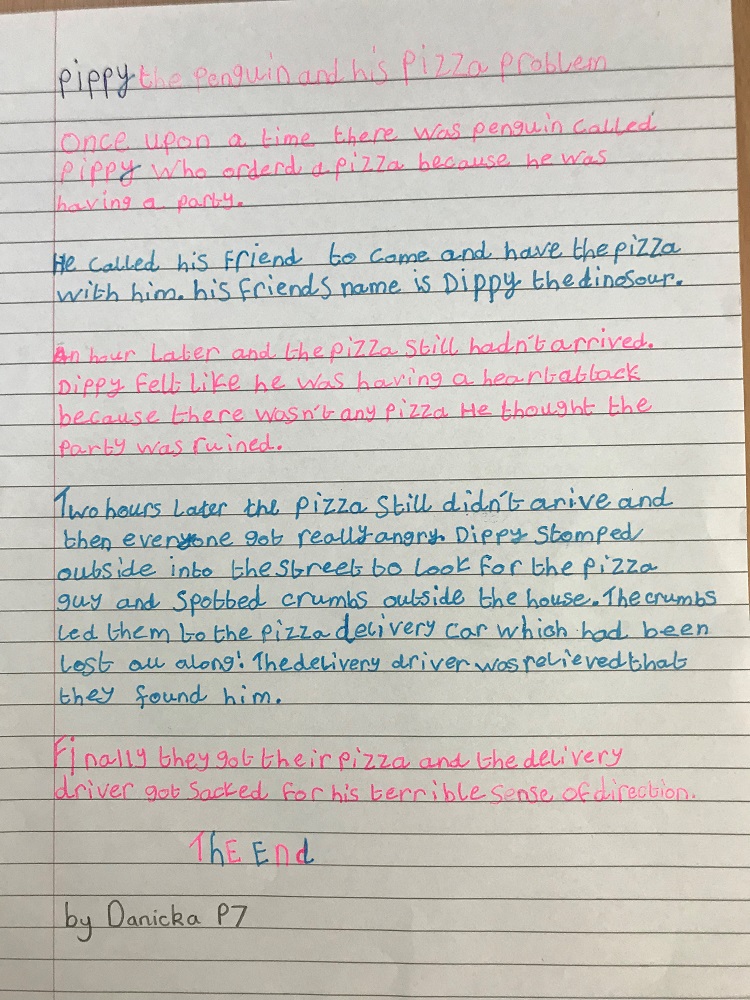 Pippy the Penguin and his Pizza problem
Once upon a time there was penguin called
Pippy who orderd a pizza because he was
having a party.
He called his friend to come and have the pizza
with him. his friends name is Dippy the dinosour.
An hour later and the pizza still hadn't arrived.
Dippy felt like he was having a heart attack
because there wasn't any pizza He thought the
party was ruined.
Two hours later the pizza still didn't arive and
then everyone got really angry. Dippy stomped
outside into the street to look for the pizza
guy and spotted crumbs outside the house. The crumbs
led them to the pizza delivery car which had been
lost all along! The delivery driver was relieved that
they found him.
Finally they got their pizza and the delivery
driver got sacked for his terrible sense of direction.
ThE End
by Danicka P7